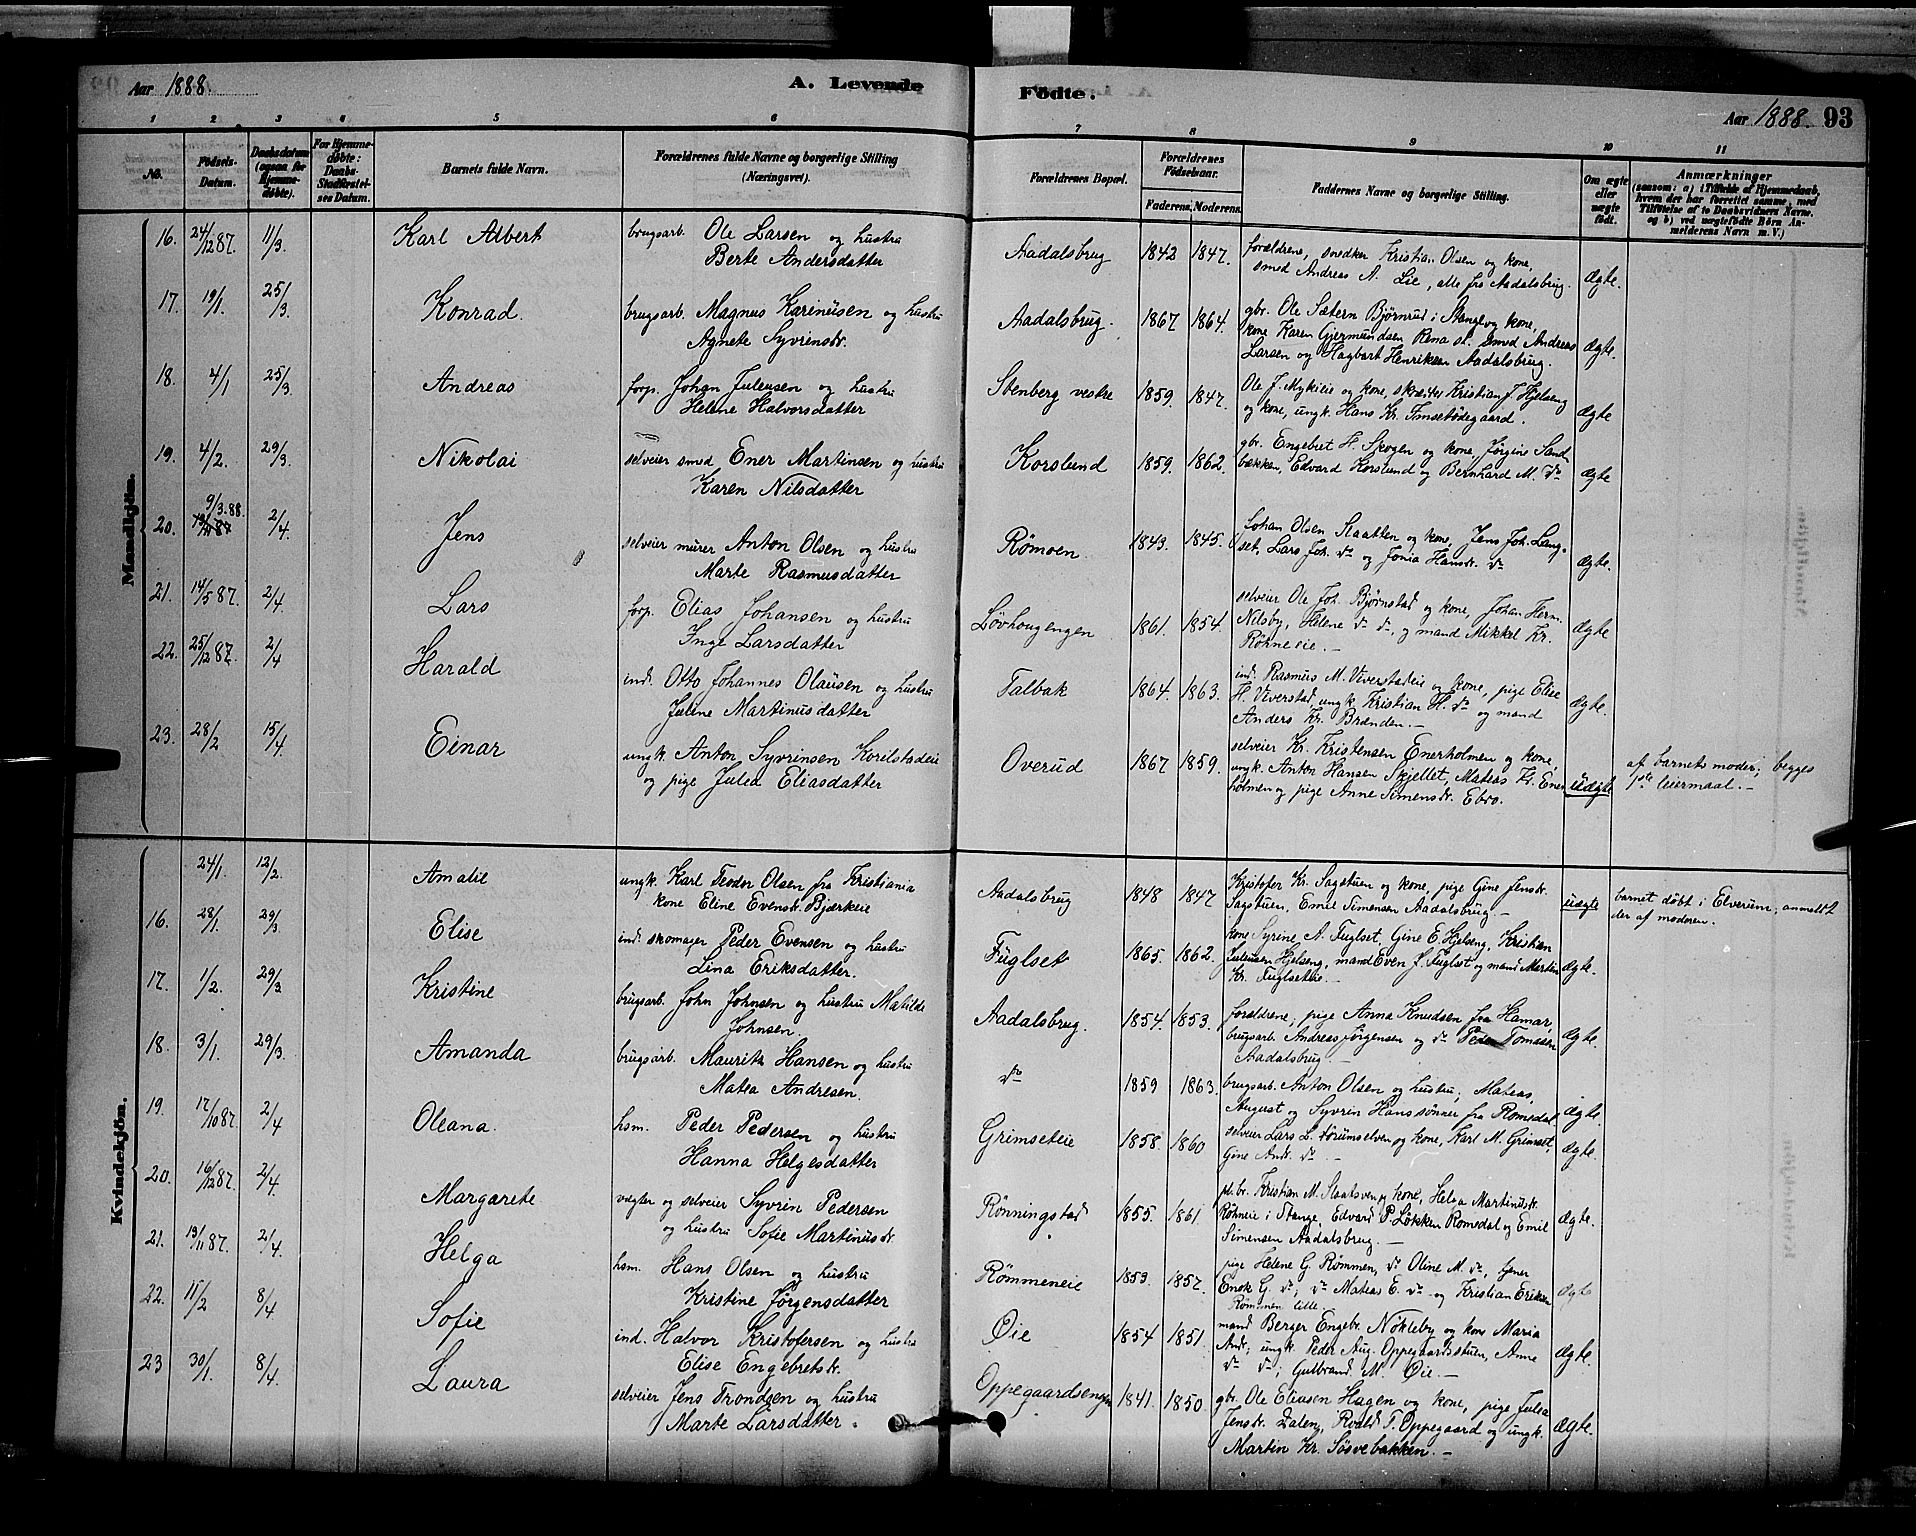 Aar 1888.
A. Levende Födte.
Aar 1888. 93
1 2 3 4 5 6 7 8 9 10 11
No.
Födsels-Datum.
Daabsdatum (ogsaa for Hjemmedøbte).
For Hjemmedøbte: Daabs-Stadfæstelses Datum.
Barnets fulde Navn.
Forældrenes fulde Navne og borgerlige Stilling (Næringsvei).
Forældrenes Bopæl.
Forældrenes Födselsaar.
Faderens. Moderens.
Faddernes Navne og borgerlige Stilling.
Om ægte eller uægte födt.
Anmærkninger
(saasom: a) i Tilfælde af Hjemmedaab, hvem der har forrettet samme, med Tilföielse af to Daabsvidners Navne, og b) ved uægtefödte Börn Anmelderens Navn m. V.)
Mandkjön.
16. 24/12 87. 11/3. Karl Albert brugsarb. Ole Larsen og hustru
Berte Andersdatter
Aadalsbrug 1842 1847. forældrene, snedker Kristian Olsen og kone,
smed Andreas A. Lie, alle fra Aadalsbrug. Ægte.
17. 19/1. 25/3. Konrad. brugsarb. Magnus Karinusen og hustru
Agnete Syvrinsdr.
Aadalsbrug. 1867 1864. gbr. Ole Sætern Bjørnrud i Stange og kone,
kone Karen Gjermundsen Rena st. smed Andreas
Larsen og Hagbart Henriksen Aadalsbrug. Ægte.
18. 4/1 25/3. Andreas forp. Johan Juleusen og hustru
Helene Halvorsdatter
Stenberg vestre 1859. 1847. Ole J. Mykleie og kone, skrædder Kristian J. Hjelseng
og kone, ungk. Hans Kr. Imsetødegaard. Ægte
19. 4/2. 29/3. Nikolai selveier smed Ener Martinsen og hustru
Karen Nilsdatter
Korslund 1859. 1862. gbr. Engebret H. Skogen og kone, Jørgin Sand-
bækken, Edvard Korslund og Bernhard M. do Ægte
20. 9/3. 88. 2/4. Jens selveier murer Anton Olsen og hustru
Marte Rasmusdatter
Rømoen. 1843. 1845. Johan Olsen Slaatten og kone, Jens Joh. Lang-
set, Lars Joh. do og Jonia Hansdr. do Ægte.
21. 14/5 87. 2/4. Lars forp. Elias Johansen og hustru
Inge Larsdatter
Lövhougengen 1861. 1854. selveier Ole Joh. Bjørnstad og kone, Johan Herm.
Nilsby, Helene do do, og mand Mikkel Kr.
Röhneeie.- Ægte
22. 25/12 87. 2/4 Harald ind. Otto Johannes Olausen og hustru
Juline Martinusdatter
Talbak 1864. 1863. ind. Rasmus M. Viverstadeie og kone, pige Elise
H. Viverstad, ungk. Kristian H. do og mand
Anders Kr. Brænden.- Ægte.
23. 28/2 15/4. Einar ungk. Anton Syvrinsen Korilstadeie
og pige Julea Eliasdatter
Overud 1867 1859. selveier Kr. Kristensen Enerholmen og kone,
ungk. Anton Hansen Skjellet, Mateas Kr. Ener-
holmen og pige Anne Simensdr. Ebro. uægte
af barnets moder; begges
1ste leiermaal.-
Kvindekjön.
24/1. 12/2. Amalie ungk. Karl Teodor Olsen fra Kristiania
kone Eline Evensdr. Bjærkeie
Aadalsbrug 1848 1847 Kristofer Kr. Sagstuen og kone, pige Gine Jensdr.
Sagstuen, Emil Simensen Aadalsbrug- uægte
barnet döbt i Elverum; anmeldt
der af moderen.
16. 28/1. 29/3. Elise ind. skomager Peder Evensen og hustru
Lina Eriksdatter.
Fuglset 1865. 1862. kone Syrine A. Fuglset, Gine E. Hjelseng, Kristian
Juleusen Hjelseng, mand Even J. Fuglset og mand Martin
Kr. Fuglseteie. Ægte.
17. 1/2. 29/3 Kristine brugsarb. John Johnsen og hustru Matilde
Johnsen.
Aadalsbrug. 1854. 1853. forældrene; pige Anna Knudsen fra Hamar,
brugsarb. Andreas Jørgensen og do Peder Tomasen
Aadalsbrug.- Ægte.
18. 3/1. 29/3. Amanda brugsarb. Mauritz Hansen og hustru
Matea Andresen.
do 1859 1863. brugsarb. Anton Olsen og hustru; Mateas,
August og Syvrin Hanssønner fra Romedal Ægte.
19. 17/10 87. 2/4. Oleana. hsm. Peder Pedersen og hustru
Hanna Helgesdatter
Grimseteie 1858. 1860 selveier Lars L. Sørumselven og kone, Karl M. Grimset,
Gine Andr. do - Ægte.
20. 16/12 87. 2/4. Margarete vægter og selveier Syvrin Pedersen
og hustru Sofie Martinusdr.
Rönningstad 1855. 1861. pl.br. Kristian M. Slaatsven og kone, Helga Martinusdr.
Röhneie i Stange, Edvard P. Løkken Romedal og Emil
Simensen Aadalsbrug.- Ægte.
21. 19/11 87. 2/4. Helga hsm. Hans Olsen og hustru
Kristine Jørgensdatter
Römmeneie 1853. 1857. pige Helene G. Rømmen, do Oline M. do, Gener
G. do; do Mateas E. do og Kristian Eriksen
Rømmen lille. Ægte
22. 11/2 8/4. Sofie ind. Halvor Kristofersen og hustru
Elise Engebretsdr.
Øie 1854 1851. mand Berger Engebr. Nökleby og kone Maria
Andr; ungk. Peder Aug. Oppegaardsstuen, Anne
do do; Gulbrand M. Øie.- Ægte.
23 30/1. 8/4. Laura selveier Jens Trondsen og hustru
Marte Larsdatter.
Oppegaardsengen 1841. 1850. gbr. Ole Eliasen Hagen og kone, pige Julea
Jensdr. Dalen, Roald T. Oppegaard og ungk.
Martin Kr. Søsvebakken.- Ægte.